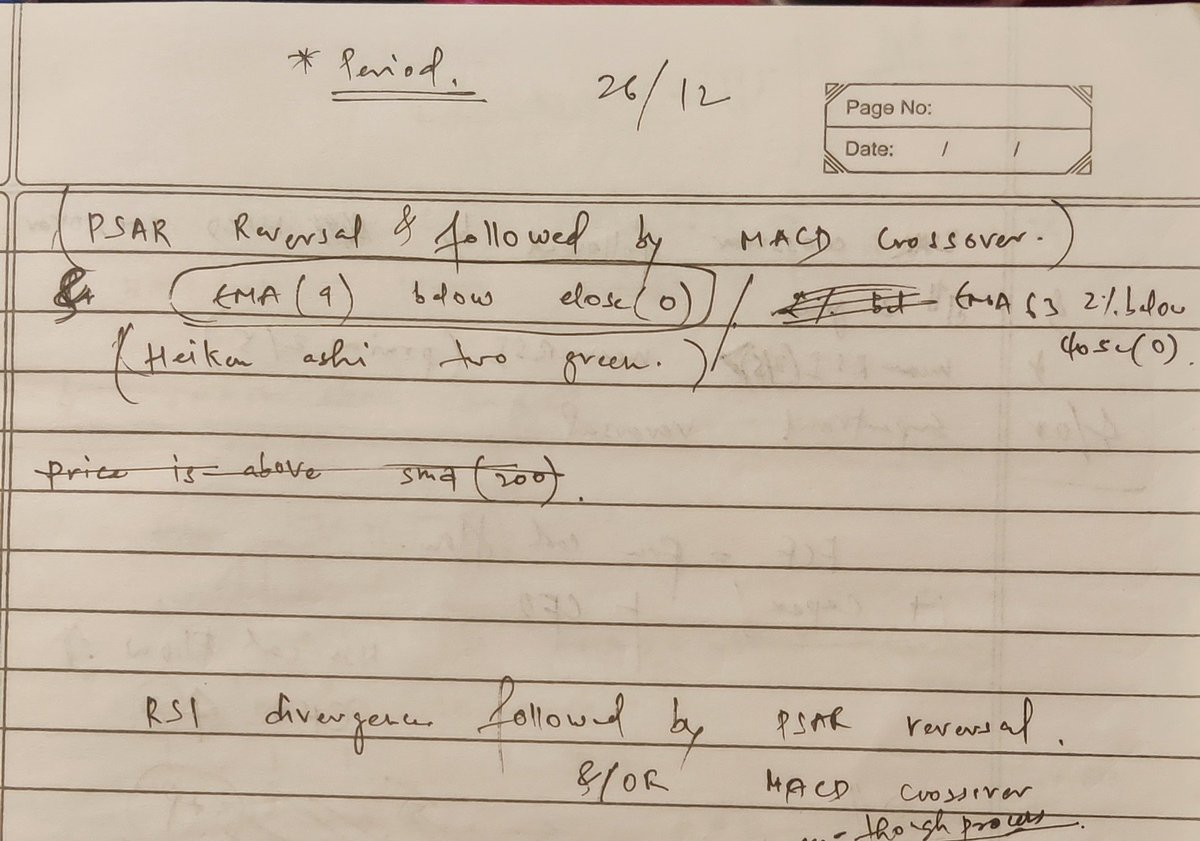 * Period. 26/12
Page No:
Date: / /
(PSAR Reversal & followed by MACD Crossover.)
& EMA (9) below close(0) / EMA 63 2% below
close(0).
(Heiken ashi two green.)
price is above sma (200).
RSI divergence followed by PSAR reversal.
&/OR MACD crossover
- though process.